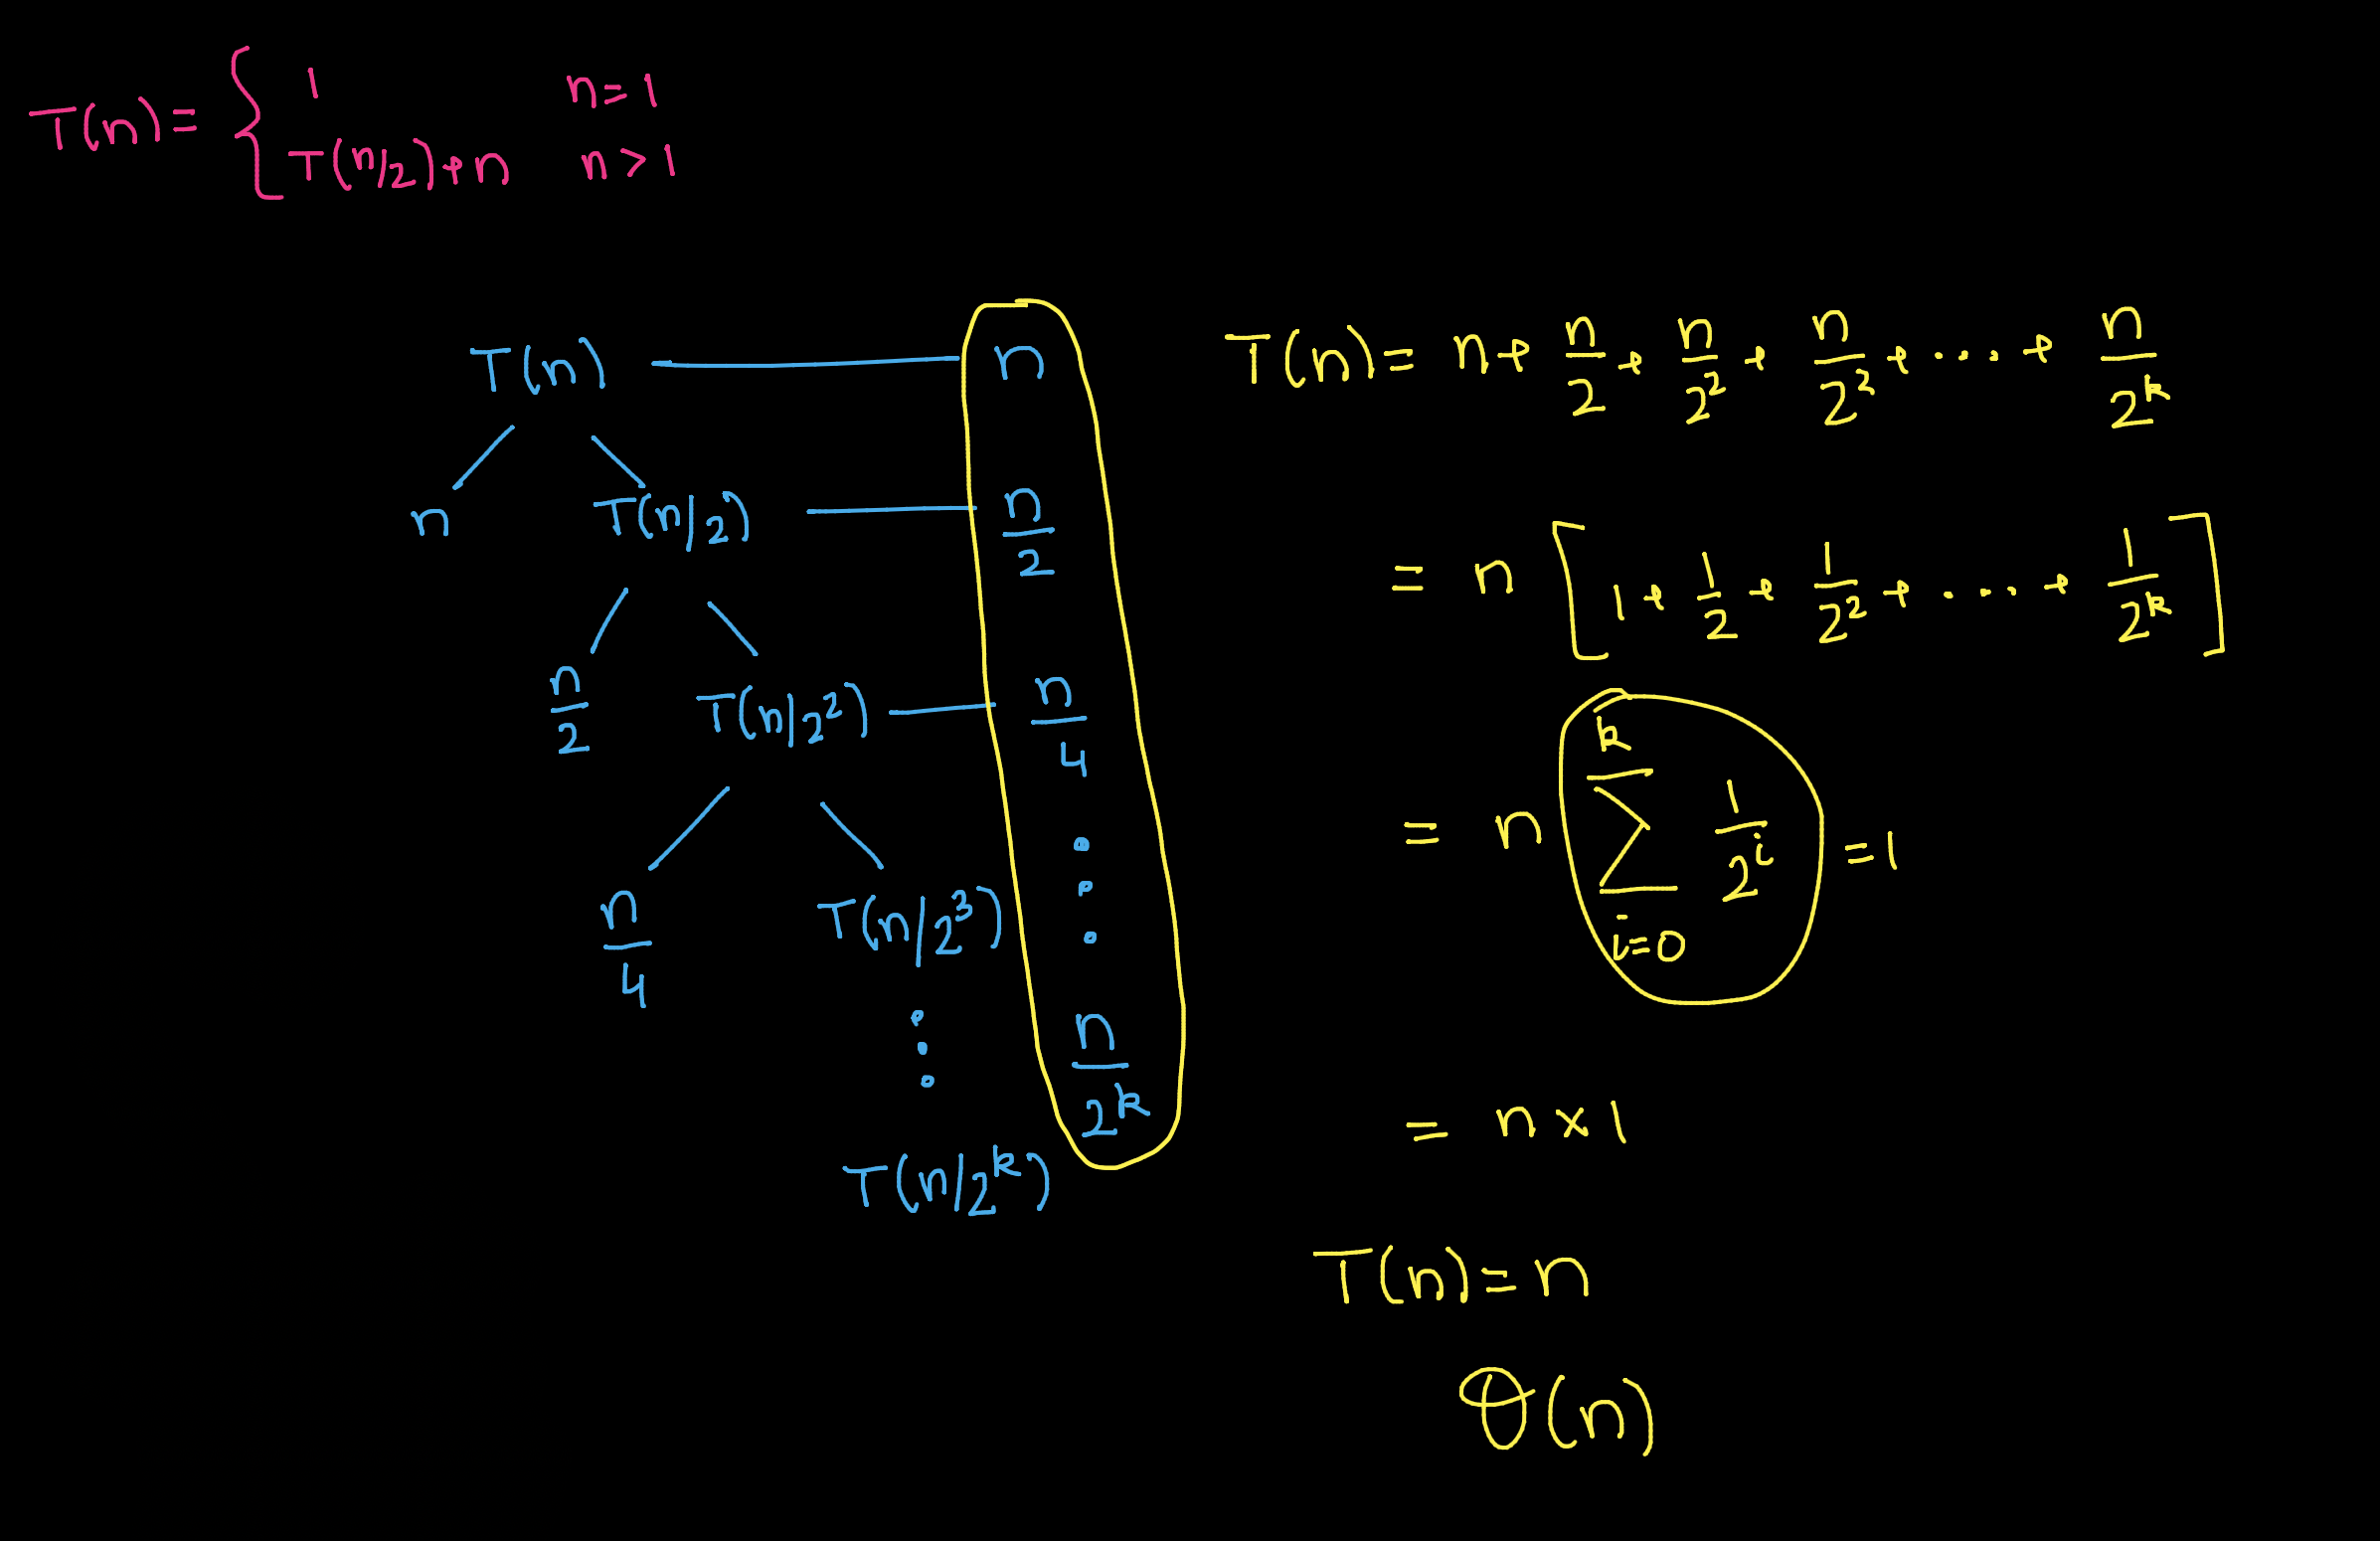 T(n) = { 1 n=1
T(n/2)+n n>1
T(n) n
n T(n/2) n/2
n/2 T(n/2²) n/4
n/4 T(n/2³)
n/2ᵏ
T(n/2ᵏ)
T(n) = n + n/2 + n/2² + n/2³ + ... + n/2ᵏ
= n [1 + 1/2 + 1/2² + ... + 1/2ᵏ]
= n ∑ᵏᵢ₌₀ 1/2ⁱ = 1
= n × 1
T(n) = n
θ(n)